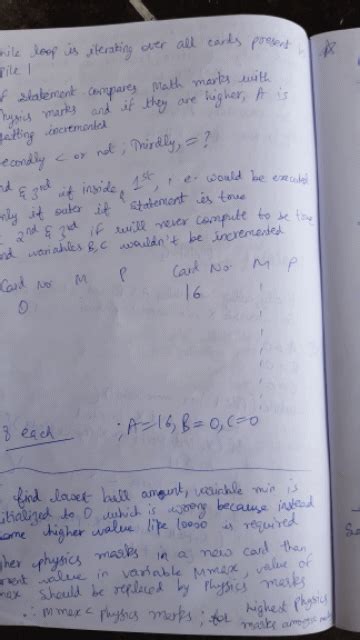 while loop is iterating over all cards present in
pile 1
if statement compares Math marks with
Physics marks and if they are higher, A is
getting incremented
Secondly < or not ; Thirdly, = ?
2nd & 3rd if inside 1st, i.e. would be executed
only if outer if statement is true
2nd & 3rd if will never compute to be true
and variables B, C wouldn't be incremented
Card No M P Card No M P
0 16
8 each ; A=16, B=0, C=0
find lowest bill amount, variable min is
initialized to 0 which is wrong because instead
some higher value like 10000 is required
higher physics marks in a new card than
current value in variable Mmax, value of
Mmax should be replaced by Physics marks
∴ Mmax < Physics marks ; for highest Physics
marks among